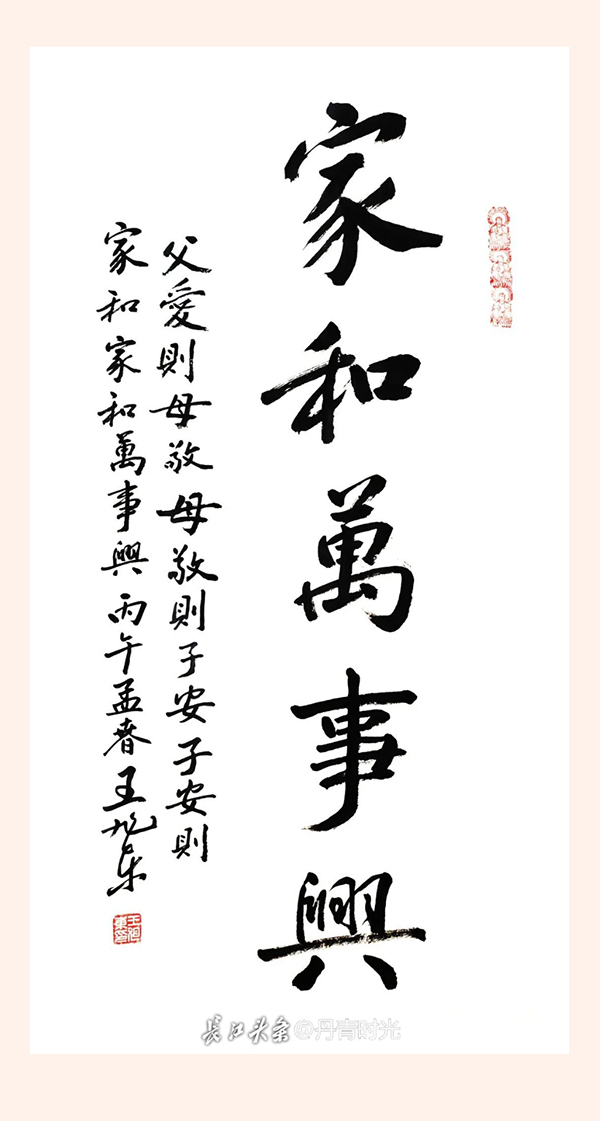 家和萬事興
父愛則母敬母敬則子安子安則
家和家和萬事興丙午孟春王旭东
长江头条@丹青时光